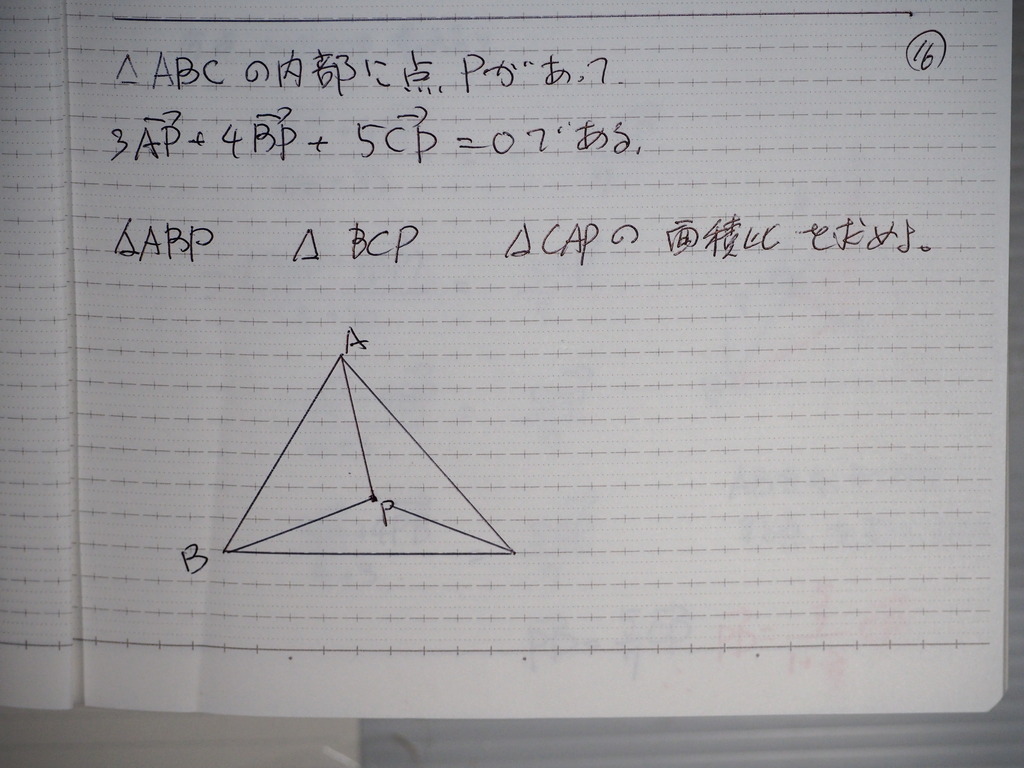 ⑯
△ABCの内部に点Pがあって
3AP→ + 4BP→ + 5CP→ = 0である.
△ABP △BCP △CAPの面積比を求めよ。
A
P
B